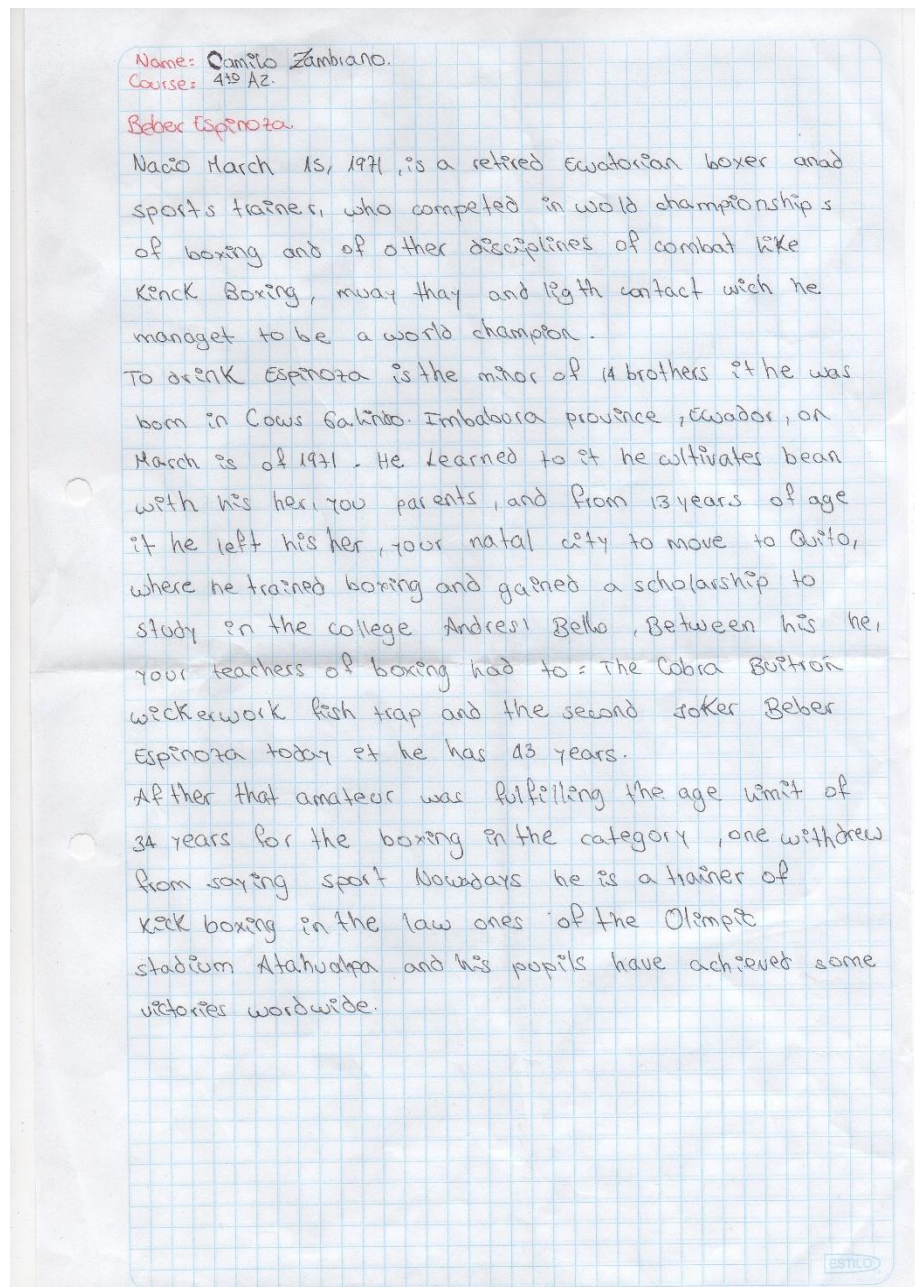 Name: Camilo Zambrano.
Course: 4to A2.
Beber Espinoza.
Nacio March 15, 1971, is a retired Ecuatorian boxer anad
sports trainer, who competed in wold championship s
of boxing and of other disciplines of combat like
Kinck Boxing, muay thay and ligth contact wich he
managet to be a world champion.
To drink Espinoza is the minor of 14 brothers it he was
born in Cows Galindo. Imbabura province, Ecuador, on
March is of 1971. He Learned to it he cultivates bean
with his her, you parents, and from 13 years of age
it he left his her, your natal city to move to Quito,
where he trained boxing and gained a scholarship to
study in the college Andres1 Bello, Between his he,
your teachers of boxing had to = The Cobra Buitron
wickerwork fish trap and the second Joker Beber
Espinoza today it he has 43 years.
Af ther that amateur was fulfilling the age limit of
34 years for the boxing in the category, one withdrew
from saying sport Nowadays he is a trainer of
Kick boxing in the law ones of the Olimpic
stadium Atahualpa and his pupils have achieved some
victories wordwide.
ESTILO